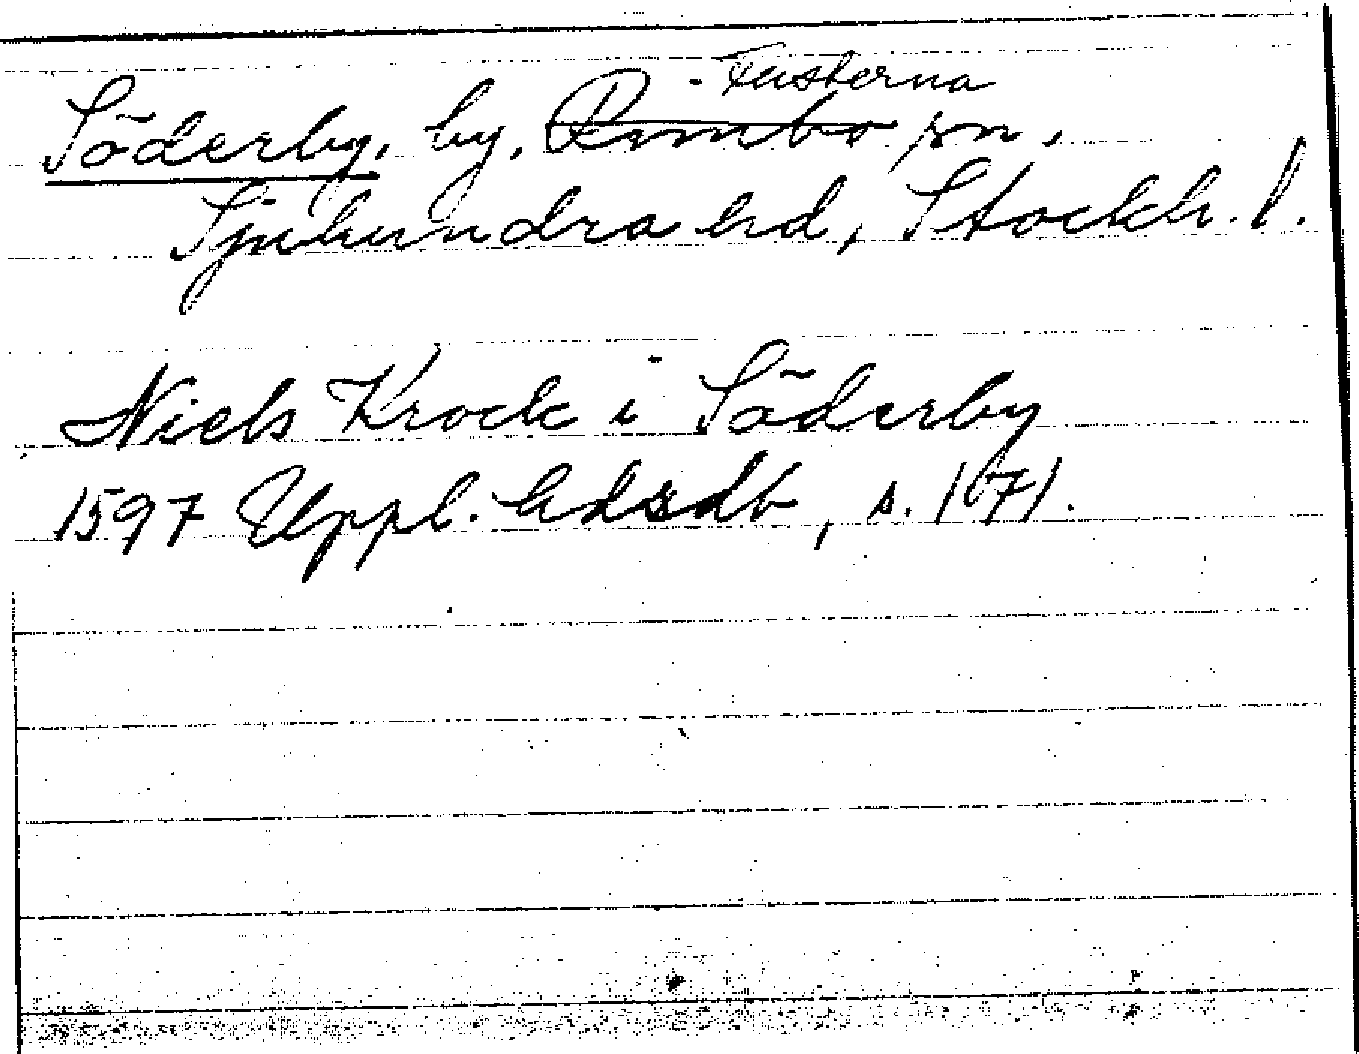 Söderby, by, Rimbo - Fasterna sn,
Sjuhundra hd, Stockh. l.
Niels Krock i Söderby
1597 Uppl. hdsdb, s. 171.